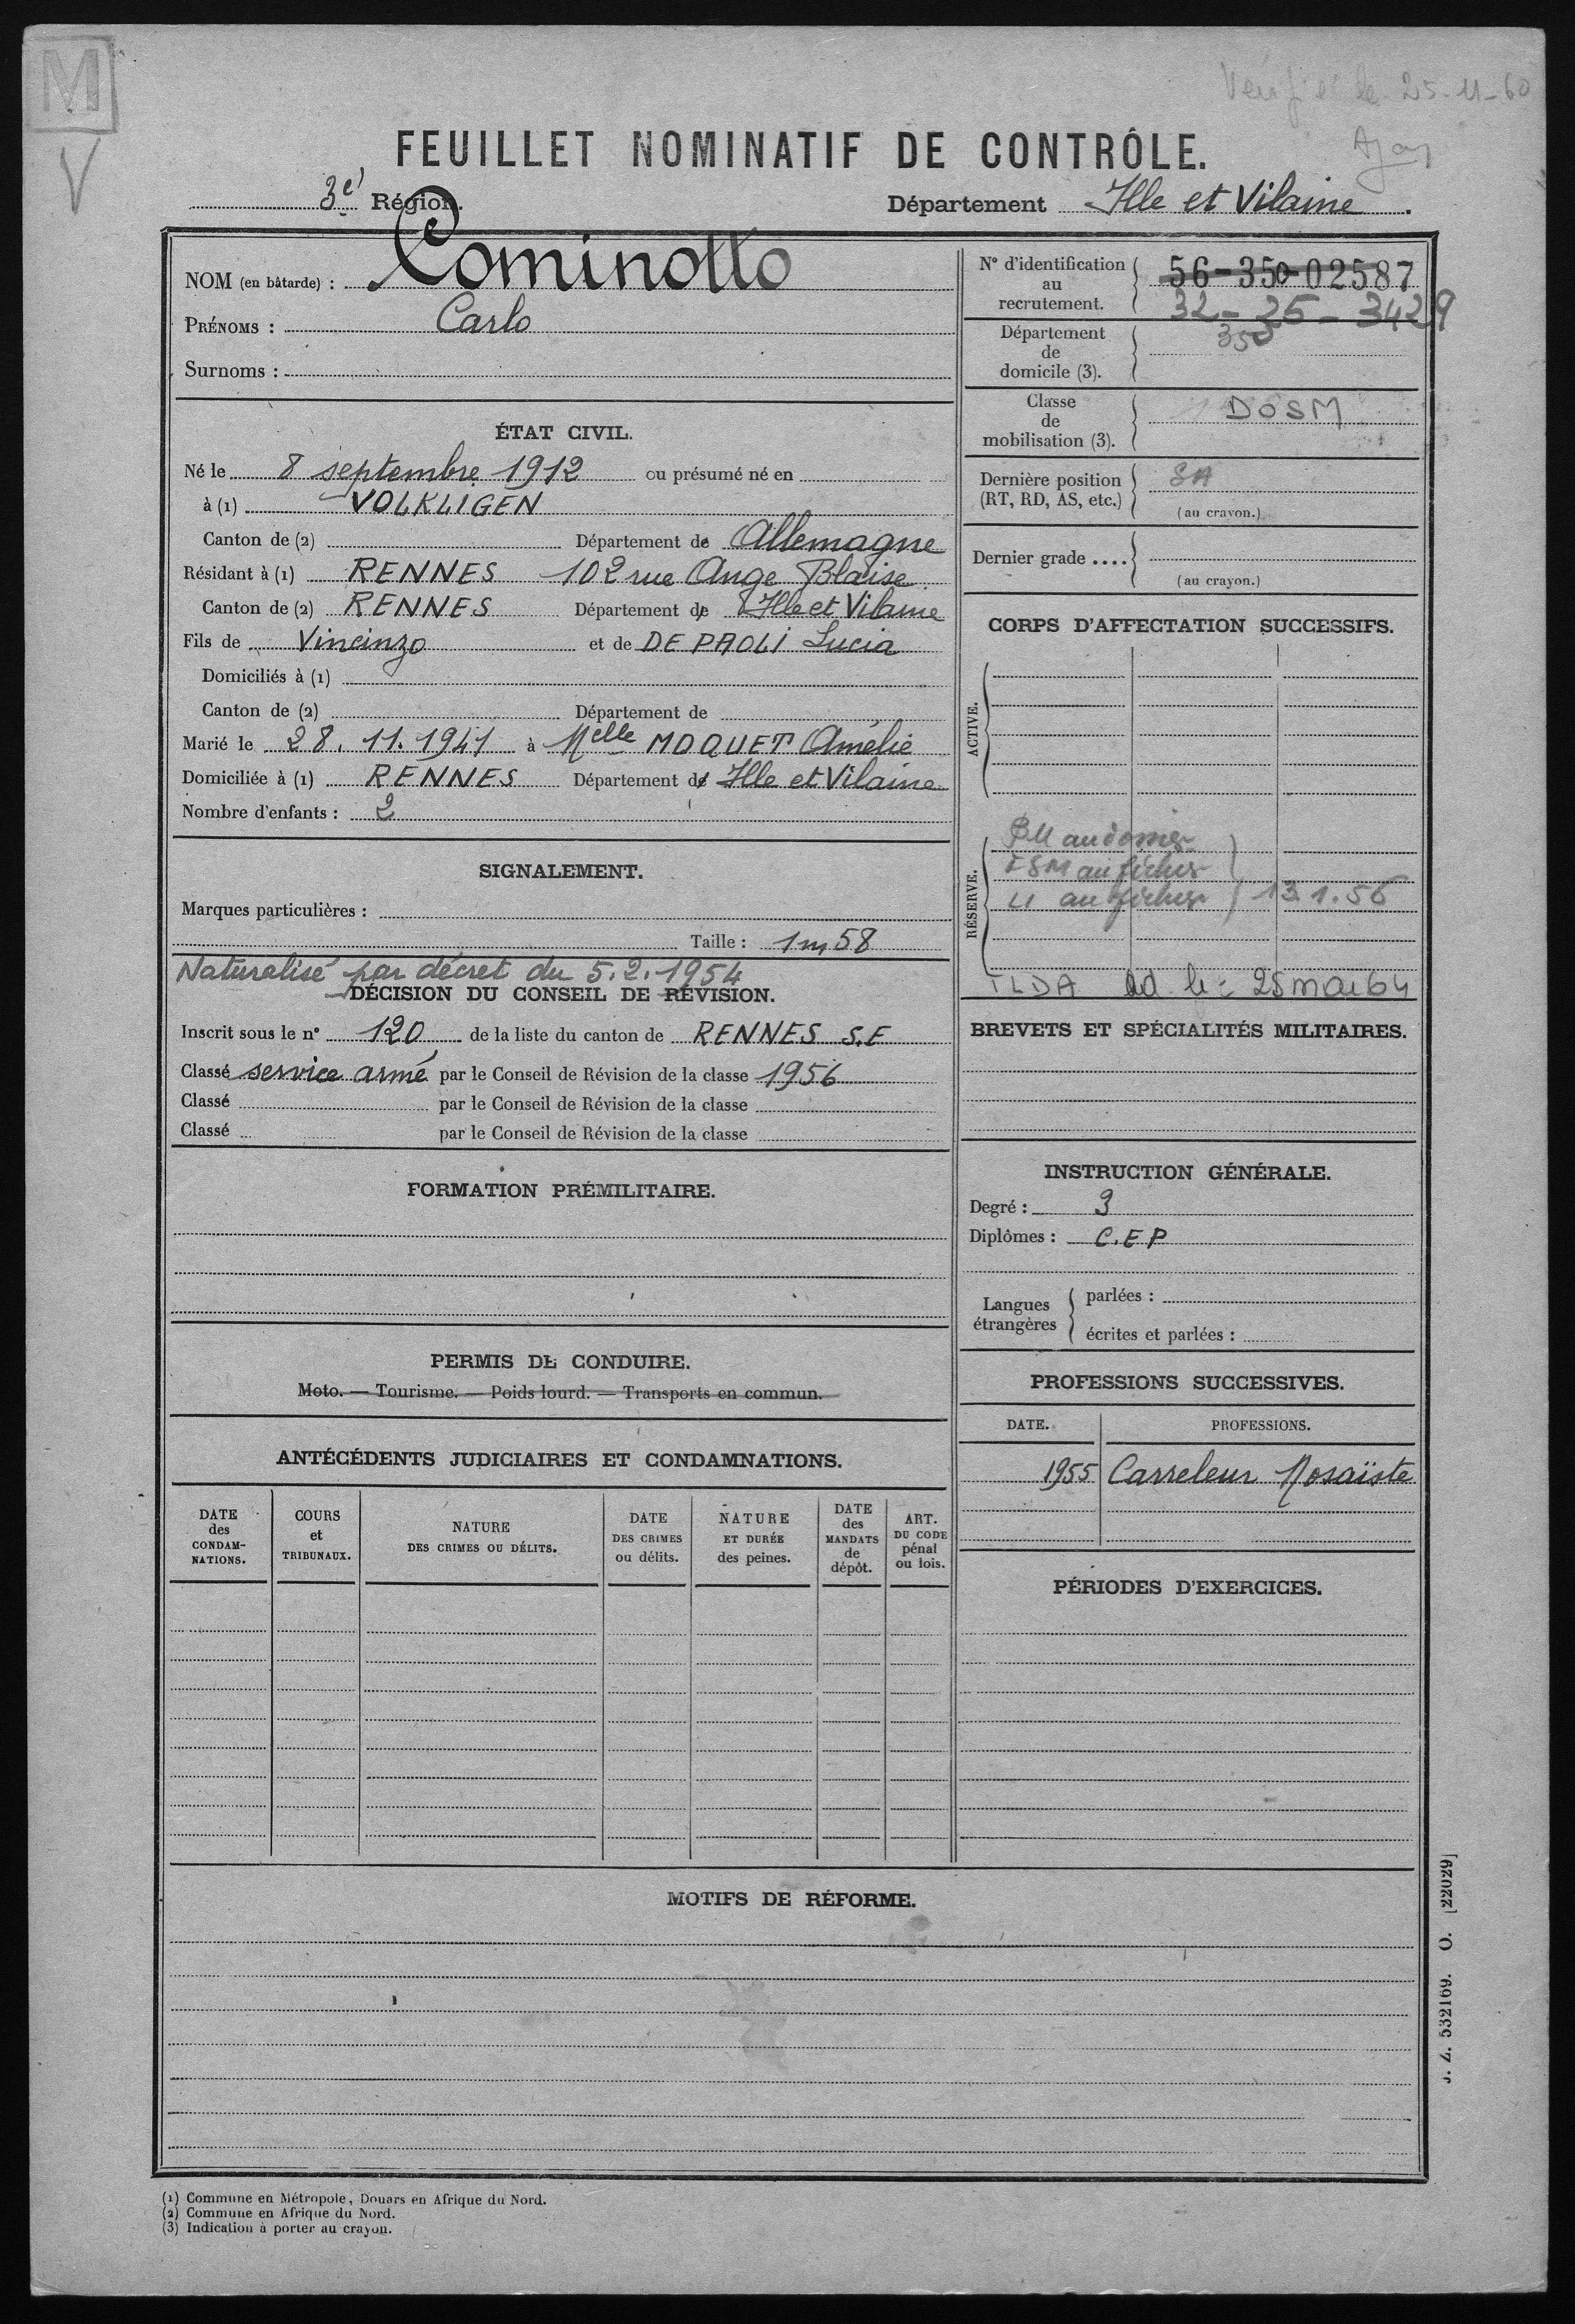 M
V
Vérifié le 25-11-60
FEUILLET NOMINATIF DE CONTRÔLE.
3e Région.
Département Ille et Vilaine.
NOM (en bâtarde) : Cominotto
PRÉNOMS : Carlo
Surnoms :
ÉTAT CIVIL.
Né le 8 septembre 1912 ou présumé né en
à (1) VOLKLIGEN
Canton de (2) Département de Allemagne
Résidant à (1) RENNES 102 rue Ange Blaise
Canton de (2) RENNES Département de Ille et Vilaine
Fils de Vincinzo et de DE PAOLI Lucia
Domiciliés à (1)
Canton de (2) Département de
Marié le 28.11.1941 à Melle MOQUET Amélie
Domiciliée à (1) RENNES Département de Ille et Vilaine
Nombre d'enfants : 2
SIGNALEMENT.
Marques particulières :
Taille : 1m58
Naturalisé par décret du 5.2.1954
DÉCISION DU CONSEIL DE RÉVISION.
Inscrit sous le n° 120 de la liste du canton de RENNES S.E
Classé service armé par le Conseil de Révision de la classe 1956
Classé par le Conseil de Révision de la classe
Classé par le Conseil de Révision de la classe
FORMATION PRÉMILITAIRE.
PERMIS DE CONDUIRE.
Moto. — Tourisme. — Poids lourd. — Transports en commun.
ANTÉCÉDENTS JUDICIAIRES ET CONDAMNATIONS.
DATE des CONDAM-NATIONS.
COURS et TRIBUNAUX.
NATURE DES CRIMES OU DÉLITS.
DATE DES CRIMES ou délits.
NATURE ET DURÉE des peines.
DATE des MANDATS de dépôt.
ART. DU CODE pénal ou lois.
N° d'identification au recrutement.
56-350-02587
32-35-3429
350
Département de domicile (3).
Classe de mobilisation (3).
DOSM
Dernière position (RT, RD, AS, etc.)
SA
(au crayon.)
Dernier grade ....
(au crayon.)
CORPS D'AFFECTATION SUCCESSIFS.
ACTIVE.
RÉSERVE.
13.1.56
TLDA le 25 mai 64
BREVETS ET SPÉCIALITÉS MILITAIRES.
INSTRUCTION GÉNÉRALE.
Degré : 3
Diplômes : C.E P
Langues étrangères
parlées :
écrites et parlées :
PROFESSIONS SUCCESSIVES.
DATE. PROFESSIONS.
1955 Carreleur Mosaïste
PÉRIODES D'EXERCICES.
MOTIFS DE RÉFORME.
J. Z. 532169. O. [22029]
(1) Commune en Métropole, Douars en Afrique du Nord.
(2) Commune en Afrique du Nord.
(3) Indication à porter au crayon.